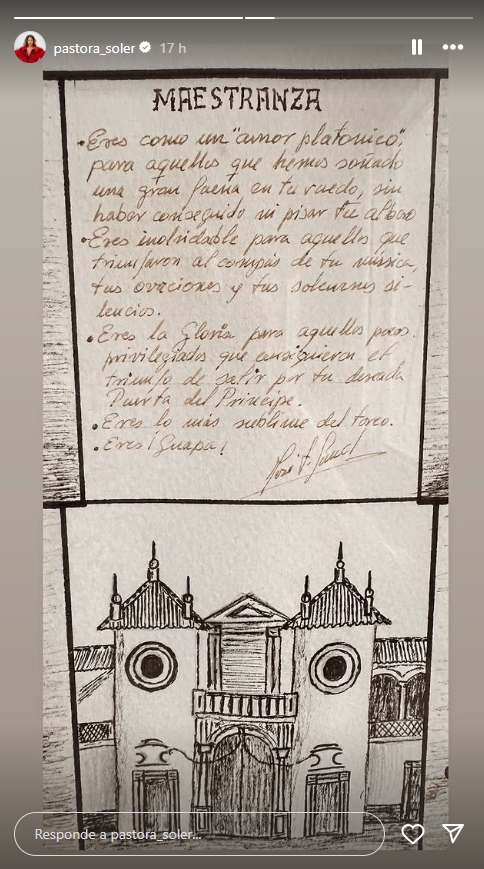 pastora_soler 17 h
MAESTRANZA
• Eres como un "amor platonico",
para aquellos que hemos soñado
una gran faena en tu ruedo, sin
haber conseguido ni pisar tu albero
• Eres inolvidable para aquellos que
triunfaron al compás de tu música,
tus ovaciones y tus solemnes si-
lencios.
• Eres la Gloria para aquellos pocos
privilegiados que consiguieron el
triunfo de salir por tu deseada
Puerta del Príncipe.
• Eres lo más sublime del toreo.
• Eres ¡Guapa!
Responde a pastora_soler...